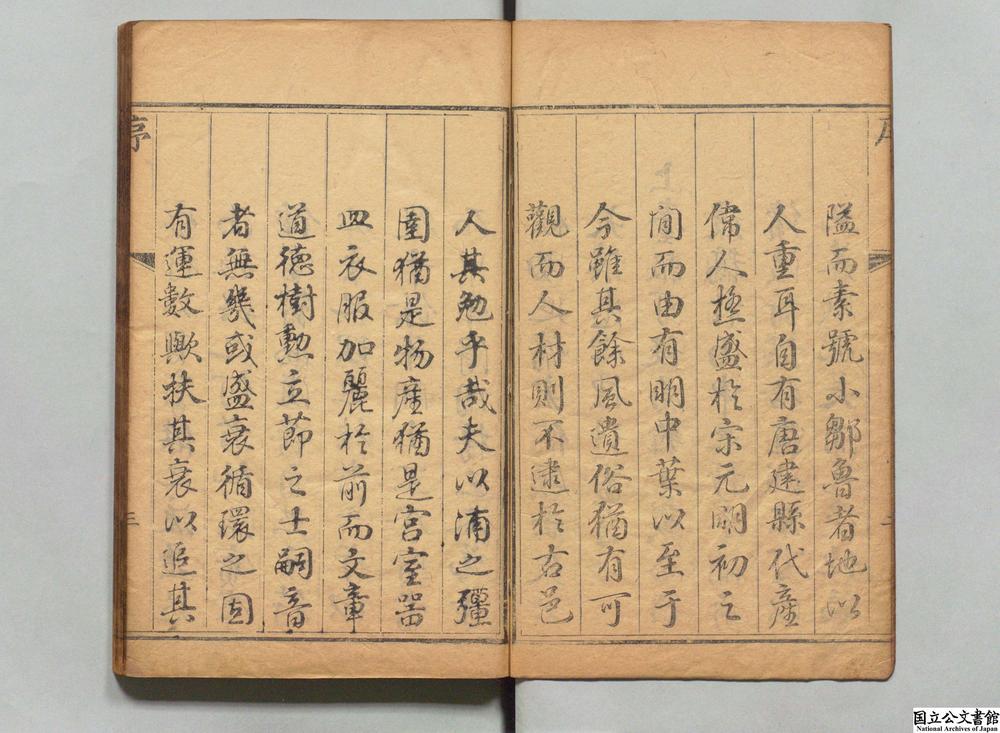 隘而素號小鄒魯者地以
人重耳自有唐建縣代產
偉人極盛於宋元明初之
間而由有明中葉以至于
今雖其餘風遺俗猶有可
觀而人材則不逮於古邑
人其勉乎哉夫以浦之疆
圉猶是物產猶是宮室器
皿衣服加麗於前而文章
道德樹勲立節之士嗣音
者無幾或盛衰循環之固
有運數歟扶其衰以追其
序
三
国立公文書館
National Archives of Japan